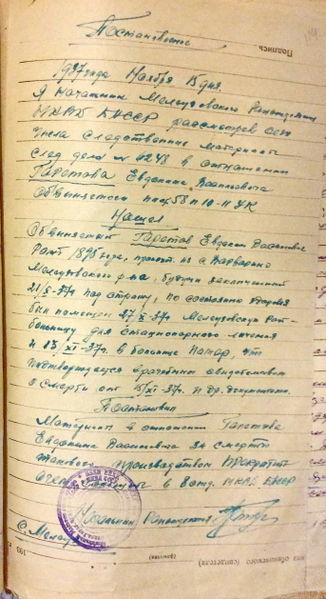 Постановление
Подпись
1937 года Ноября 15 дня.
Я Начальник Мелеузовского Райотделения
НКВД БАССР рассмотрев сего
числа следственные материалы
след дело № 4248 в отношении
Гаретова Евдокима Васильевича
Обвиняемого по ст 58 п 10-11 УК
Нашел
Обвиняемый Гаретов Евдоким Васильевич
1895 года, с Варварино
Мелеузовского р-на, будучи заключенный
21/X-37г под стражу, по состоянию здоровья
был помещен 27/X-37г Мелеузовскую Рай-
больницу для стационарного лечения
и 15/XI-37г. в больнице помер, что
подтверждается врачебным свидетельством
о смерти от 15/XI-37г. и др. документами.
Постановил
Материал в отношении Гаретова
Евдокима Васильевича за смертью
такового производством прекратить
в 8 отд. НКВД БАССР
Начальник Райотделения
с. Мелеуз
193
(фамилия)
обвиняемого (свидетеля)